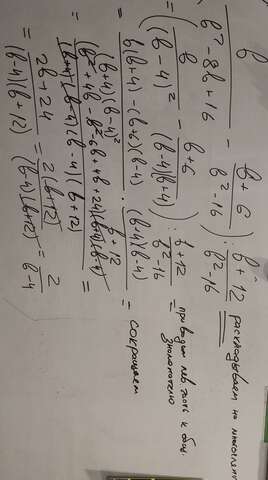 b/(b²-8b+16) - (b+6)/(b²-16) : (b+12)/(b²-16) раскладываем на множители
= (b/(b-4)² - (b+6)/((b-4)(b+4))) : (b+12)/(b²-16) = приводим лев часть к общ. знаменателю
= (b(b+4) - (b+6)(b-4))/((b+4)(b-4)²) · ((b+4)(b-4))/(b+12) = сокращаем
= (b²+4b-b²-6b+4b+24)(b+4)(b-4)/((b+4)(b-4)(b-4)(b+12)) =
= (2b+24)/((b-4)(b+12)) = 2(b+12)/((b-4)(b+12)) = 2/(b-4)